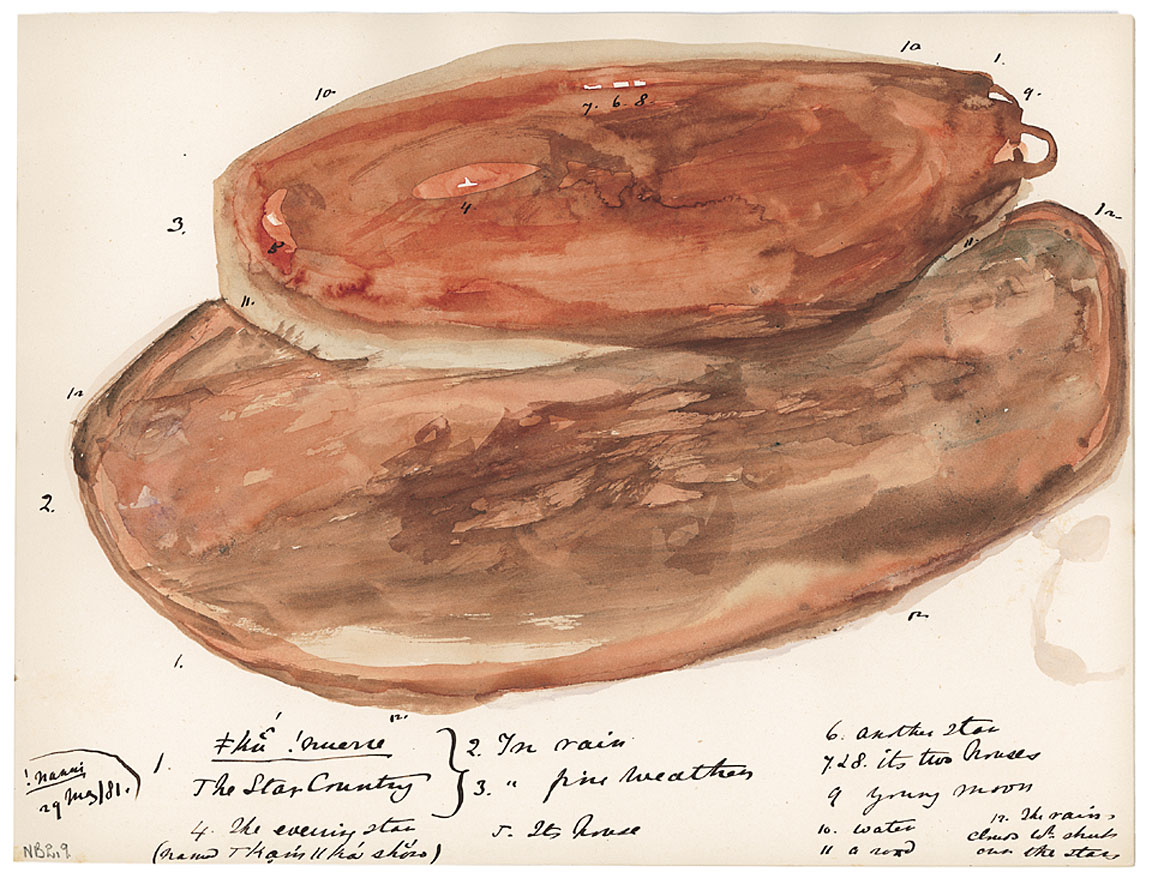 10.
10
1.
9.
7. 6. 8.
4
3.
5
11.
11.
12
12
2.
1.
12
12.
1. !nuerre
The Star Country
2. In rain
3. " fine weather
4. The evening star
(name
5. Its house
6. another star
7 & 8. its two houses
9 young moon
10. water
11 a road
12. The rain's
clouds wh. shuts
out the stars
!nanni
29 May/81.
NB2,9